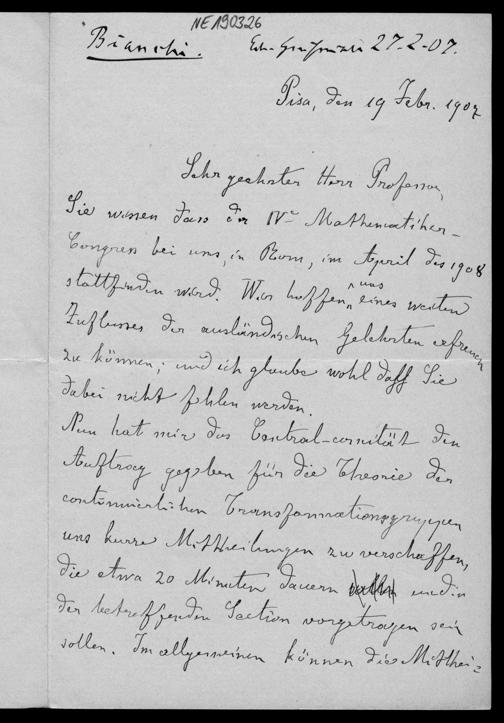 NE190326
Bianchi. 27-2-07.
Pisa, den 19 Febr. 1907
Sehr geehrter Herr Professor,
Sie wissen dass der IVe Mathematiker-
Congress bei uns, in Rom, im April des 1908
stattfinden wird. Wir hoffen uns eines weiten
Zuflusses der ausländischen Gelehrten erfreuen
zu können; und ich glaube wohl dass Sie
dabei nicht fehlen werden.
Nun hat mir das Central-comität den
Auftrag gegeben für die Theorie der
continuierlichen Transformationsgruppen
uns kurze Mittheilungen zu verschaffen,
die etwa 20 Minuten dauern und in
der betreffenden Section vorgetragen sein
sollen. Im allgemeinen können die Mitthei=